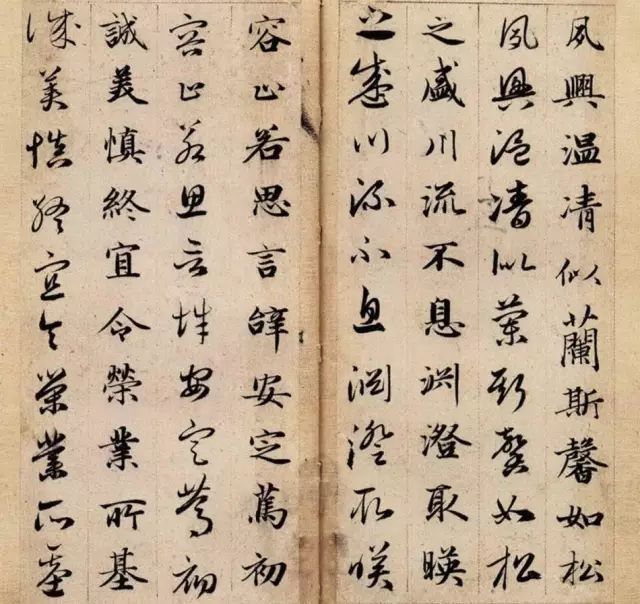 夙興温凊似蘭斯馨如松
夙興温凊似蘭斯馨如松
之盛川流不息渊澄取暎
之盛川流不息渊澄取暎
容止若思言辝安定篤初
容止若思言辝安定篤初
誠美慎終宜令榮業所基
誠美慎終宜令榮業所基